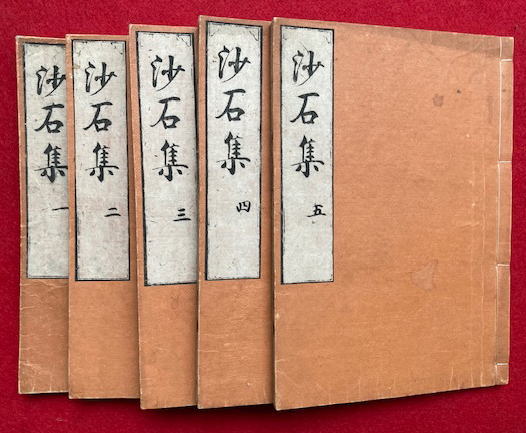 沙石集 一
沙石集 二
沙石集 三
沙石集 四
沙石集 五